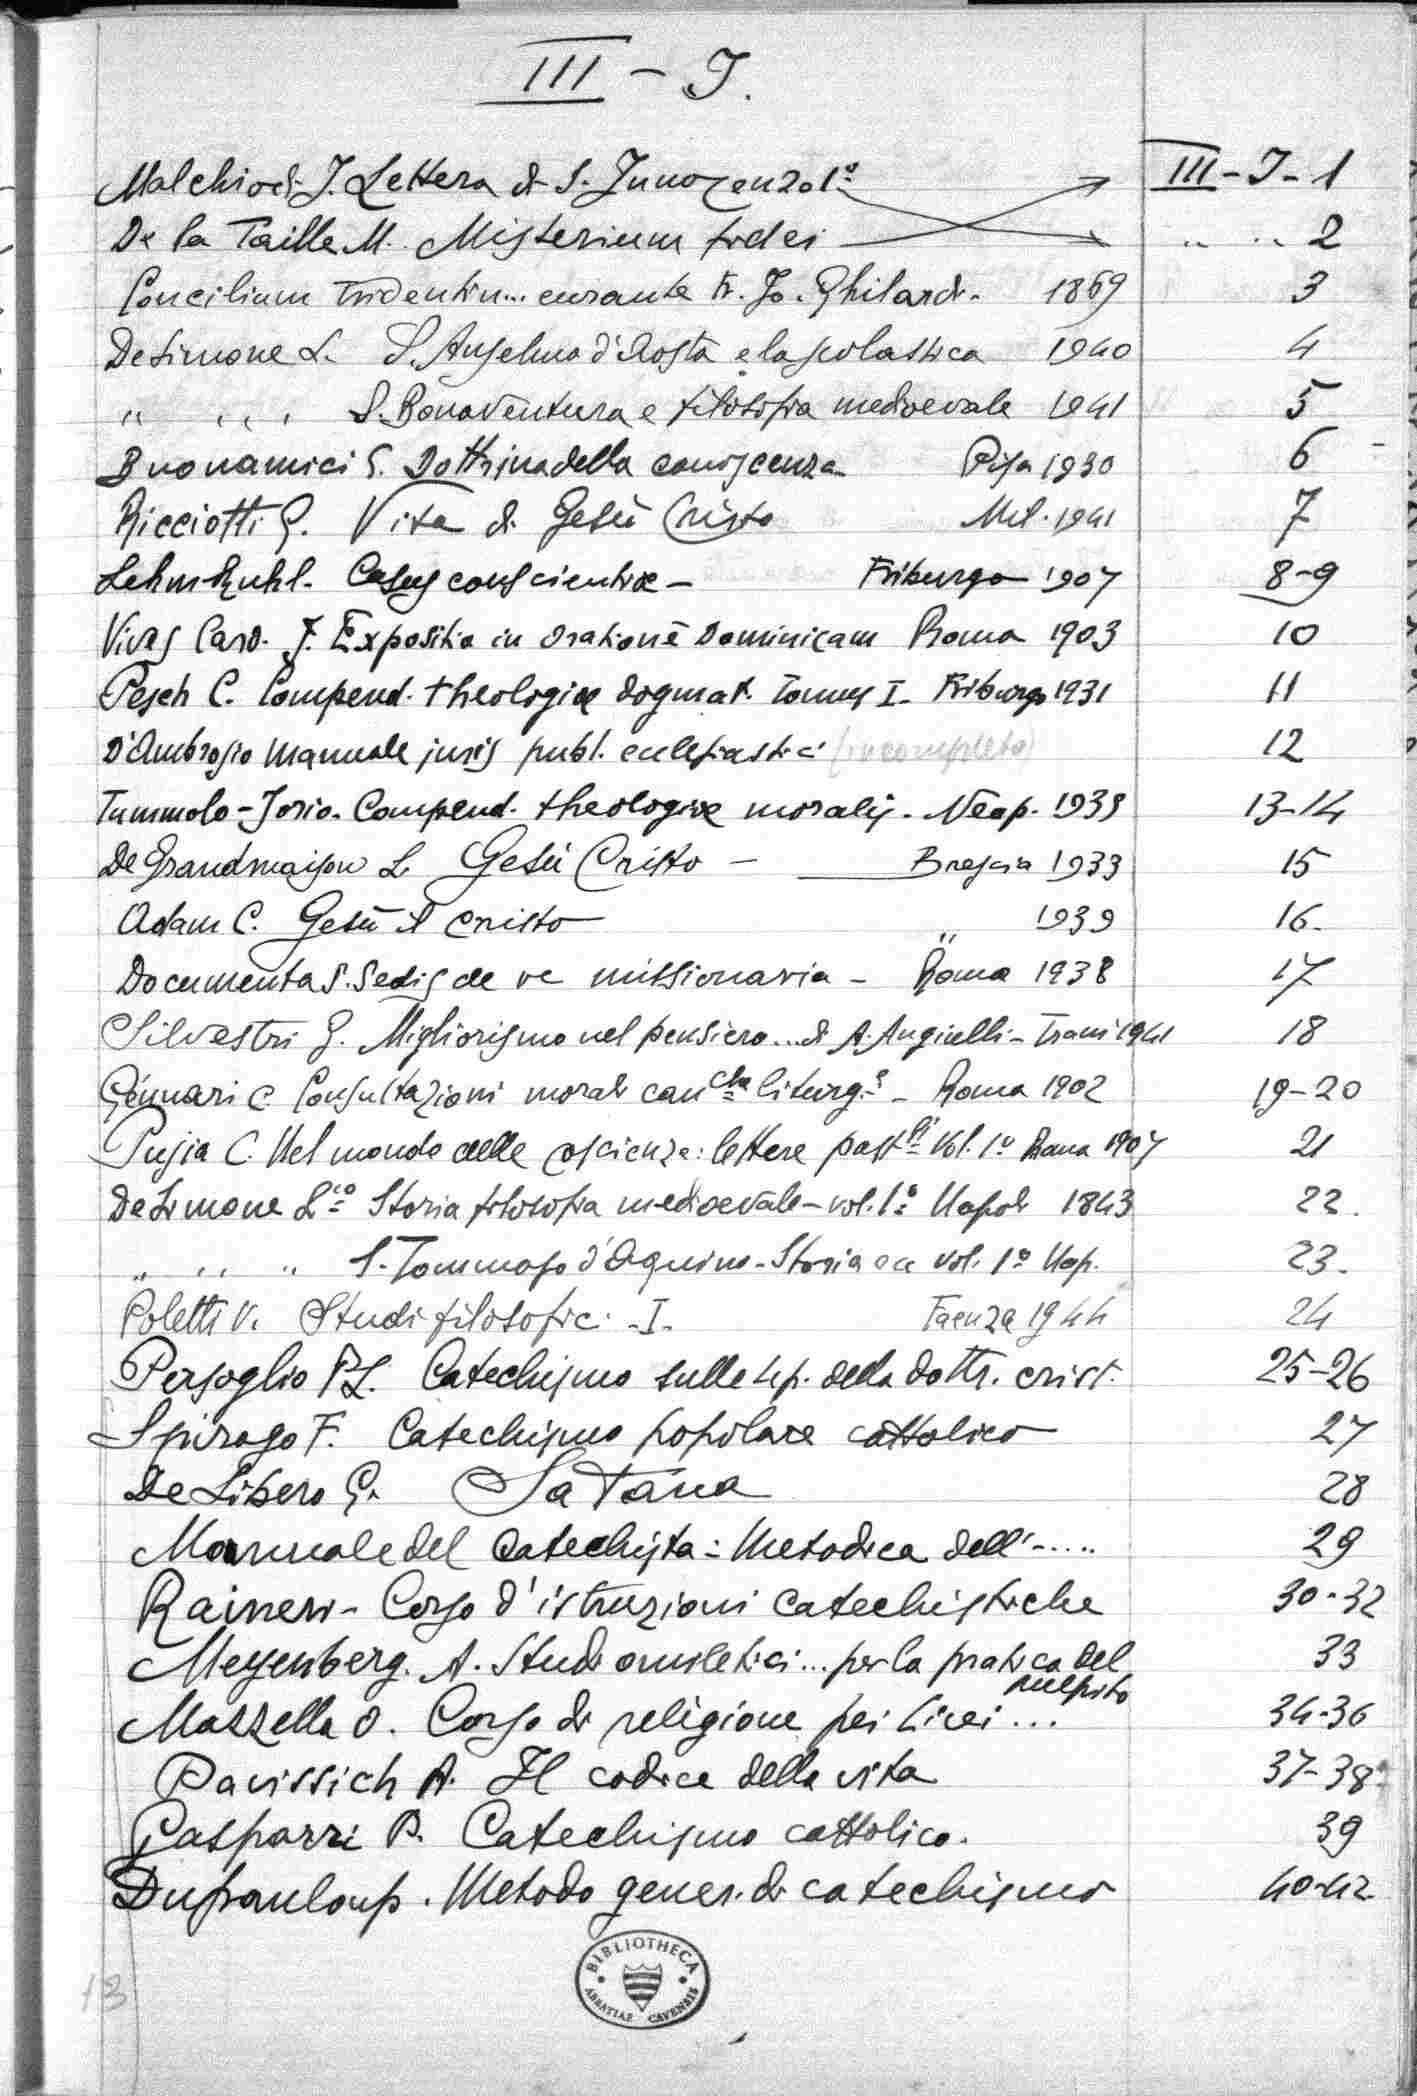 III - I.
Malchiodi J. Lettera di S. Innocenzo 1º III - I - 1
De la Taille M. Misterium fidei " " 2
Concilium Tridentin... curante Fr. Jo. Ghilardi. 1869 3
De Simone L. S. Anselmo d'Aosta e la scolastica 1940 4
" " " S. Bonaventura e filosofia medioevale 1941 5
Buonamici G. Dottrina della conoscenza Pisa 1930 6
Ricciotti G. Vita di Gesù Cristo Mil. 1941 7
Lehmkuhl. Casus conscientiæ - Friburgo 1907 8-9
Vives Card. J. Expositio in orationē Dominicam Roma 1903 10
Pesch C. Compend. theologiæ dogmat. Tomus I. Friburgo 1931 11
D'Ambrosio Manuale juris publ. ecclesiastici (incompleto) 12
Tummolo - Jorio. Compend. theologiæ moralis. Neap. 13-14
De Grandmaison L. Gesù Cristo - Brescia 1933 15
Adam C. Gesù il Cristo " 1939 16.
Documenta S. Sedis de re missionaria - Roma 1938 17
Silvestri G. Migliorismo nel pensiero... di A. Angiulli - Trani 1941 18
Gennari C. Consultazioni morali canche liturge - Roma 1902 19-20
Pujia C. Nel mondo delle coscienze: lettere pastli Vol. 1º Roma 1907 21
De Simone Lco Storia filosofia medioevale - vol. 1º Napoli 1843 22.
" " " S. Tommaso d'Aquino - Storia ecc vol. 1º Nap. 23.
Poletti V. Studi filosofici - I - Faenza 1944 24
Persoglio P.L. Catechismo sulle sep. della dottr. crist. 25-26
Spirago F. Catechismo popolare cattolico 27
De Libero G. Satana 28
Manuale del Catechista: Metodica dell'..... 29
Raineri - Corso d'istruzioni catechistiche 30-32
Meyenberg. A. Studi omiletici... per la pratica del 33
pulpito
Mazzella O. Corso di religione pei Licei ... 34-36
Pavissich A. Il codice della vita 37-38
Gasparri P. Catechismo cattolico. 39
Dupanloup. Metodo gener. di catechismo 40-42
BIBLIOTHECA
ABBATIAE CAVENSIS
13